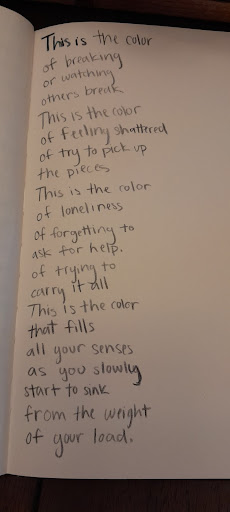 This is the color
of breaking
or watching
others break
This is the color
of feeling shattered
of try to pick up
the pieces
This is the color
of loneliness
of forgetting to
ask for help.
of trying to
carry it all
This is the color
that fills
all your senses
as you slowly
start to sink
from the weight
of your load.